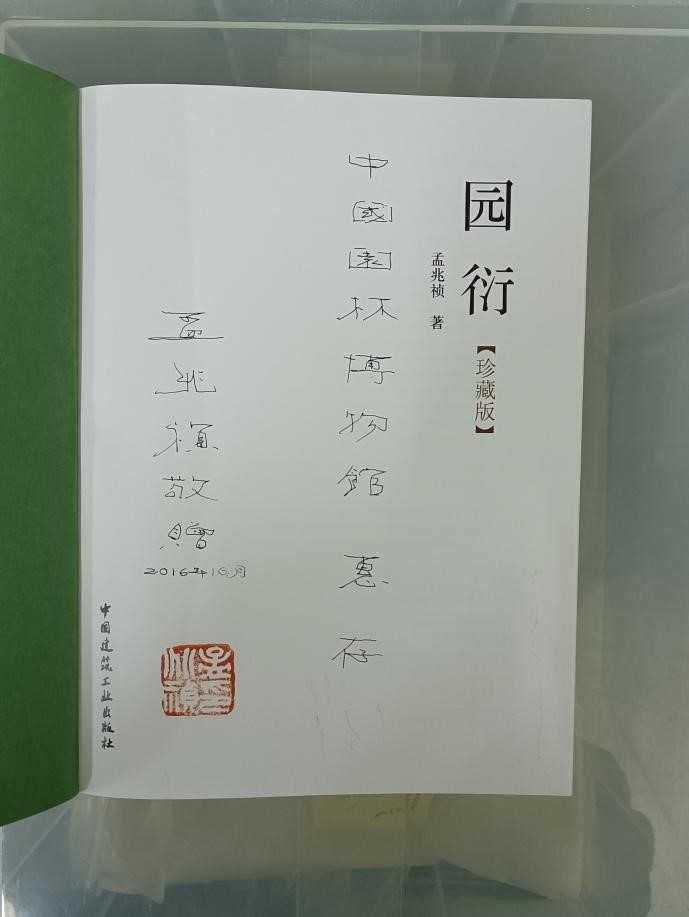 园衍
孟兆祯 著
【珍藏版】
中國園林博物館 惠存
孟兆禎敬贈
2016年10月
中国建筑工业出版社